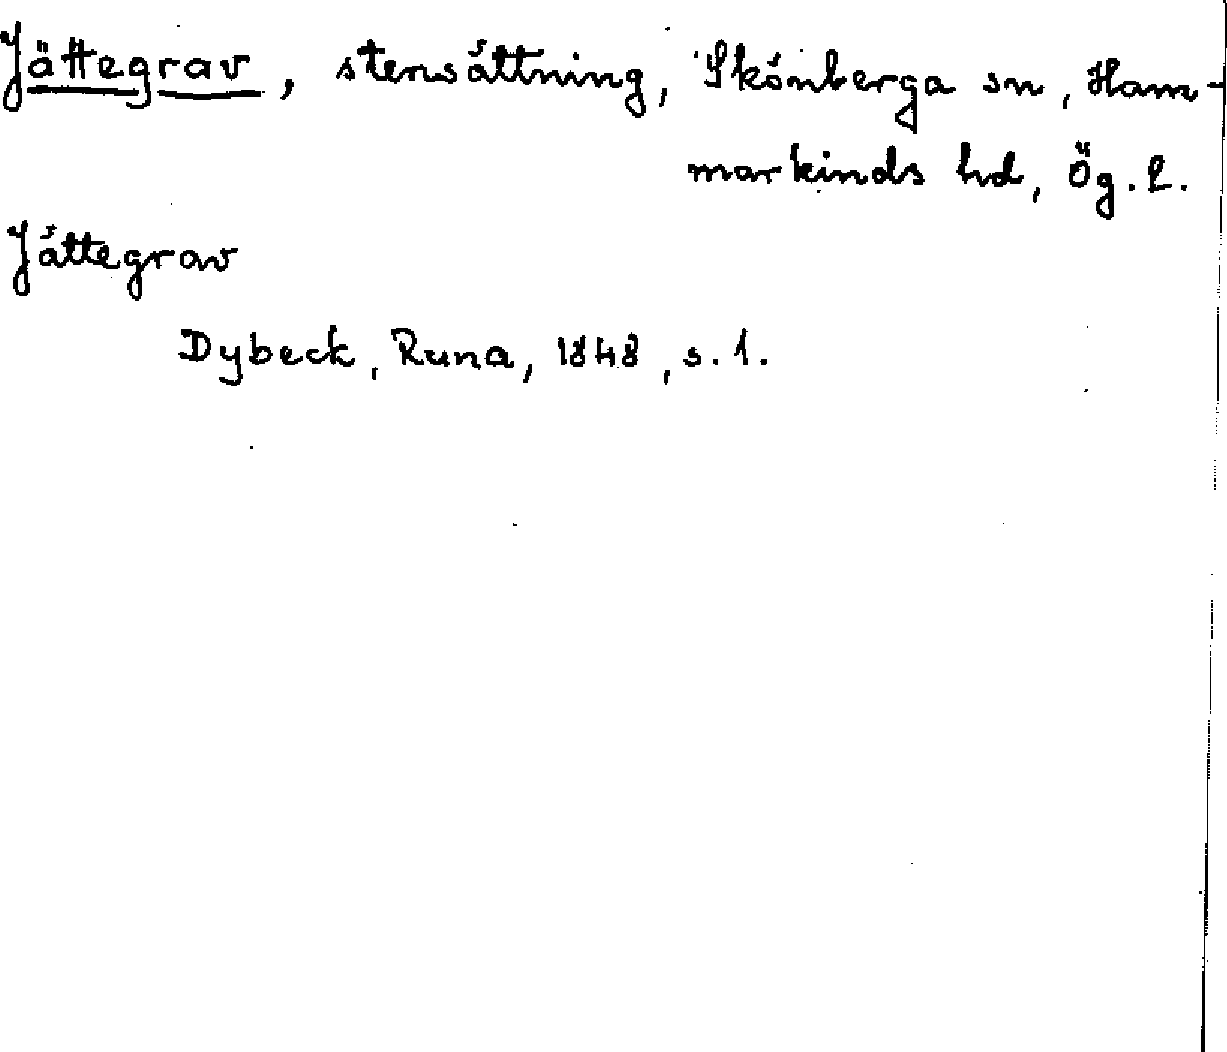 Jättegrav, stensättning, Skönberga sn, Ham-
markinds hd, Ög. l.
Jättegrav
Dybeck, Runa, 1848, s. 1.